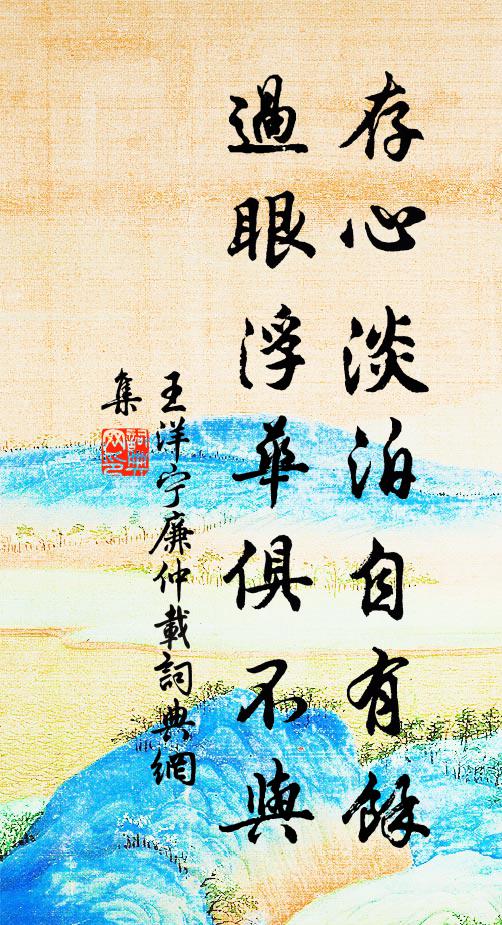 存心淡泊自有餘
過眼浮華俱不與
王洋宁廉仲載詞典網
集